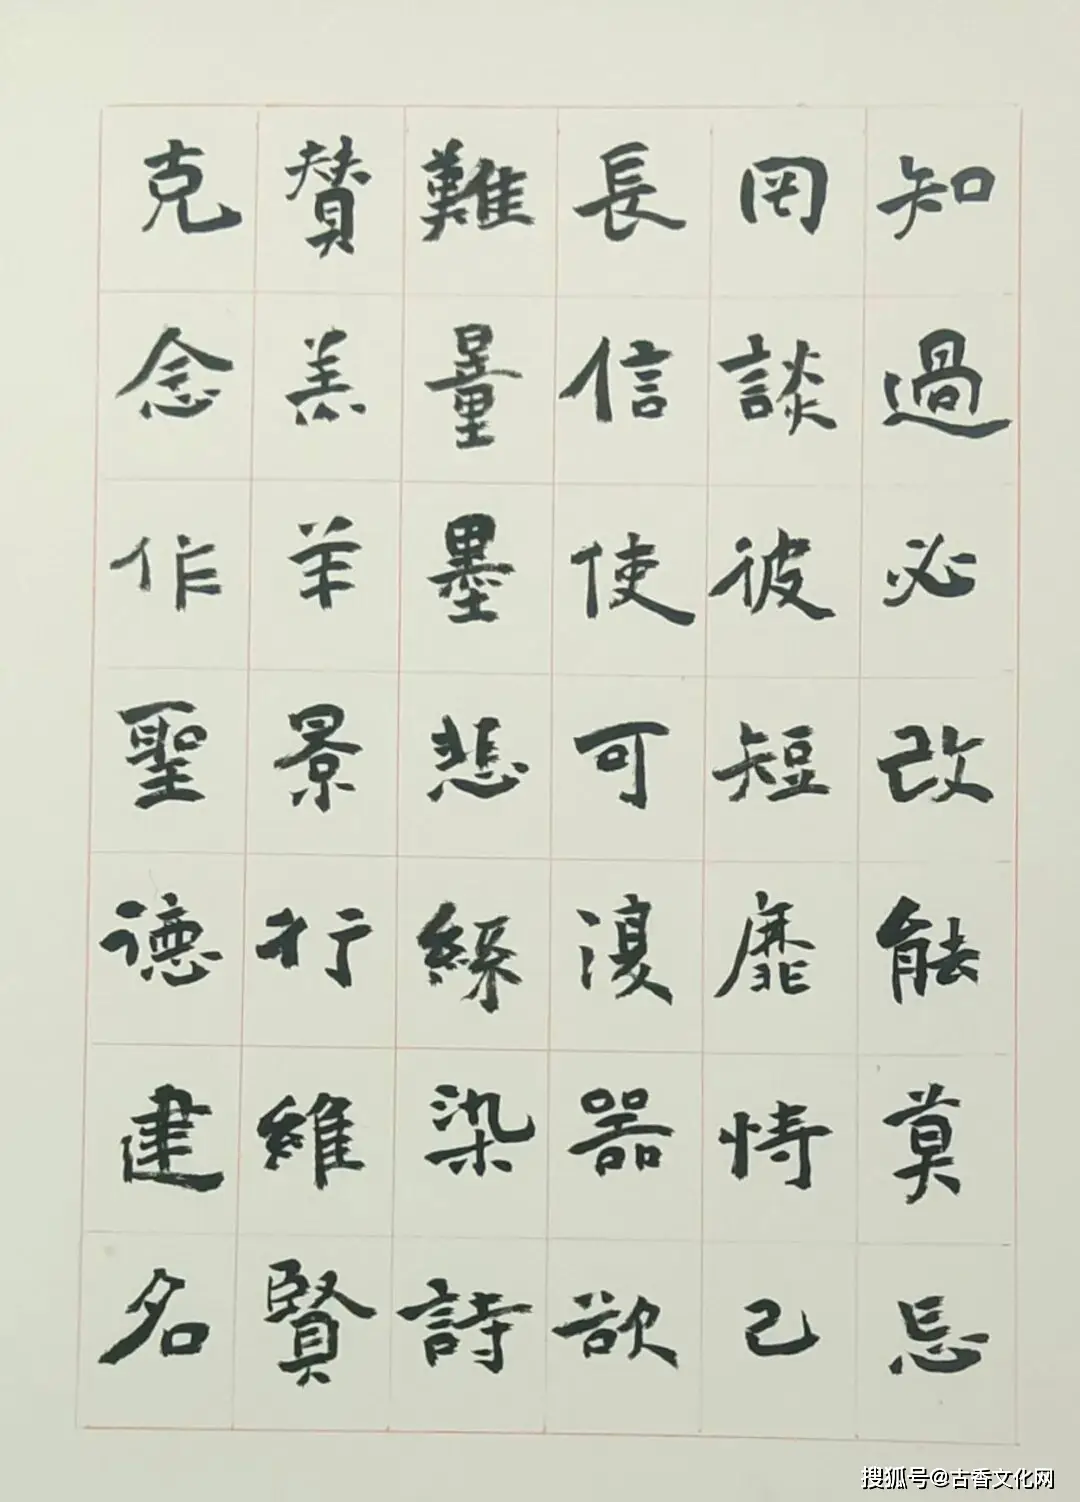 知過必改能莫忘
罔談彼短靡恃己
長信使可復器欲
難量墨悲絲染詩
賛羔羊景行維賢
克念作聖德建名
搜狐号@古香文化网